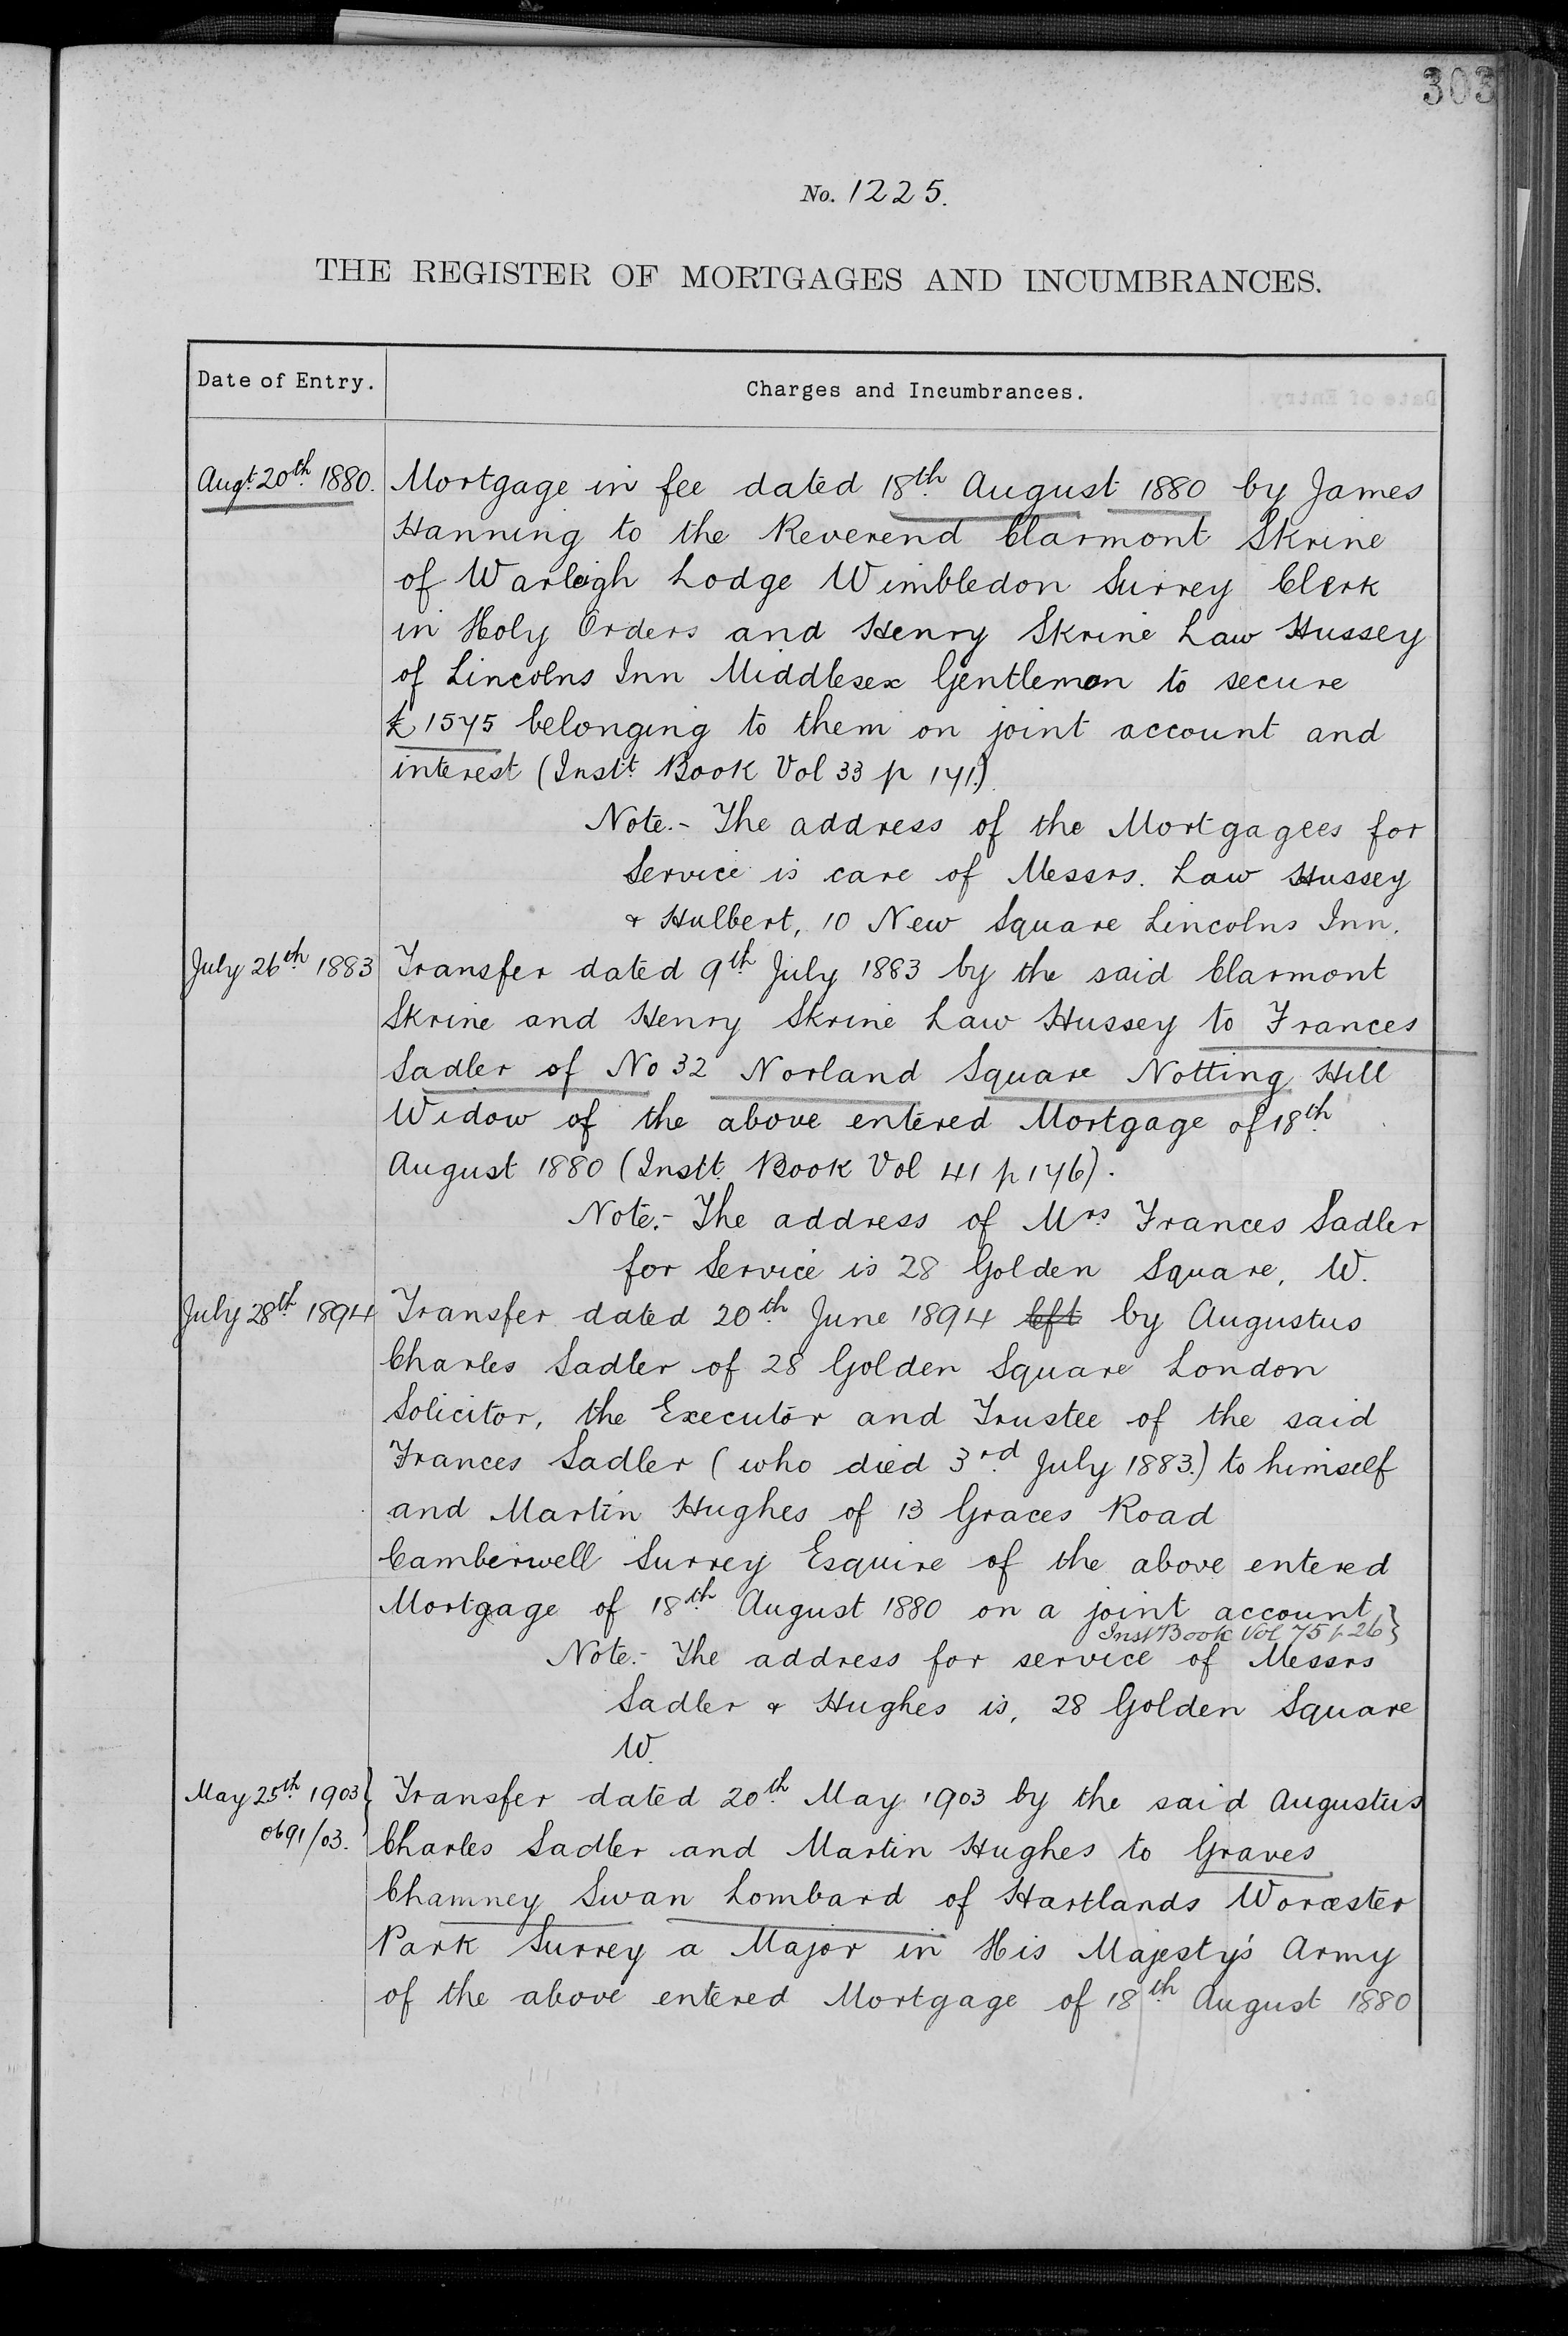 303
No. 1225.
THE REGISTER OF MORTGAGES AND INCUMBRANCES.
Date of Entry.
Charges and Incumbrances.
Augt. 20th 1880.
Mortgage in fee dated 18th August 1880 by James
Hanning to the Reverend Clarmont Skrine
of Warleigh Lodge Wimbledon Surrey Clerk
in Holy Orders and Henry Skrine Law Hussey
of Lincolns Inn Middlesex Gentleman to secure
£1575 belonging to them on joint account and
interest (Instt. Book Vol 33 p 171.)
Note.- The address of the Mortgagees for
Service is care of Messrs. Law Hussey
& Hulbert, 10 New Square Lincolns Inn.
July 26th 1883
Transfer dated 9th July 1883 by the said Clarmont
Skrine and Henry Skrine Law Hussey to Frances
Sadler of No 32 Norland Square Notting Hill
Widow of the above entered Mortgage of 18th
August 1880 (Instt. Book Vol 41 p 176).
Note.- The address of Mrs Frances Sadler
for Service is 28 Golden Square, W.
July 28th 1894
Transfer dated 20th June 1894 left by Augustus
Charles Sadler of 28 Golden Square London
Solicitor, the Executor and Trustee of the said
Frances Sadler (who died 3rd July 1883.) to himself
and Martin Hughes of 13 Graces Road
Camberwell Surrey Esquire of the above entered
Mortgage of 18th August 1880 on a joint account
Inst Book Vol 75 p 26}
Note.- The address for service of Messrs
Sadler & Hughes is, 28 Golden Square
W.
May 25th 1903}
0691/03.
Transfer dated 20th May 1903 by the said Augustus
Charles Sadler and Martin Hughes to Graves
Chamney Swan Lombard of Hartlands Worcester
Park Surrey a Major in His Majesty's Army
of the above entered Mortgage of 18th August 1880